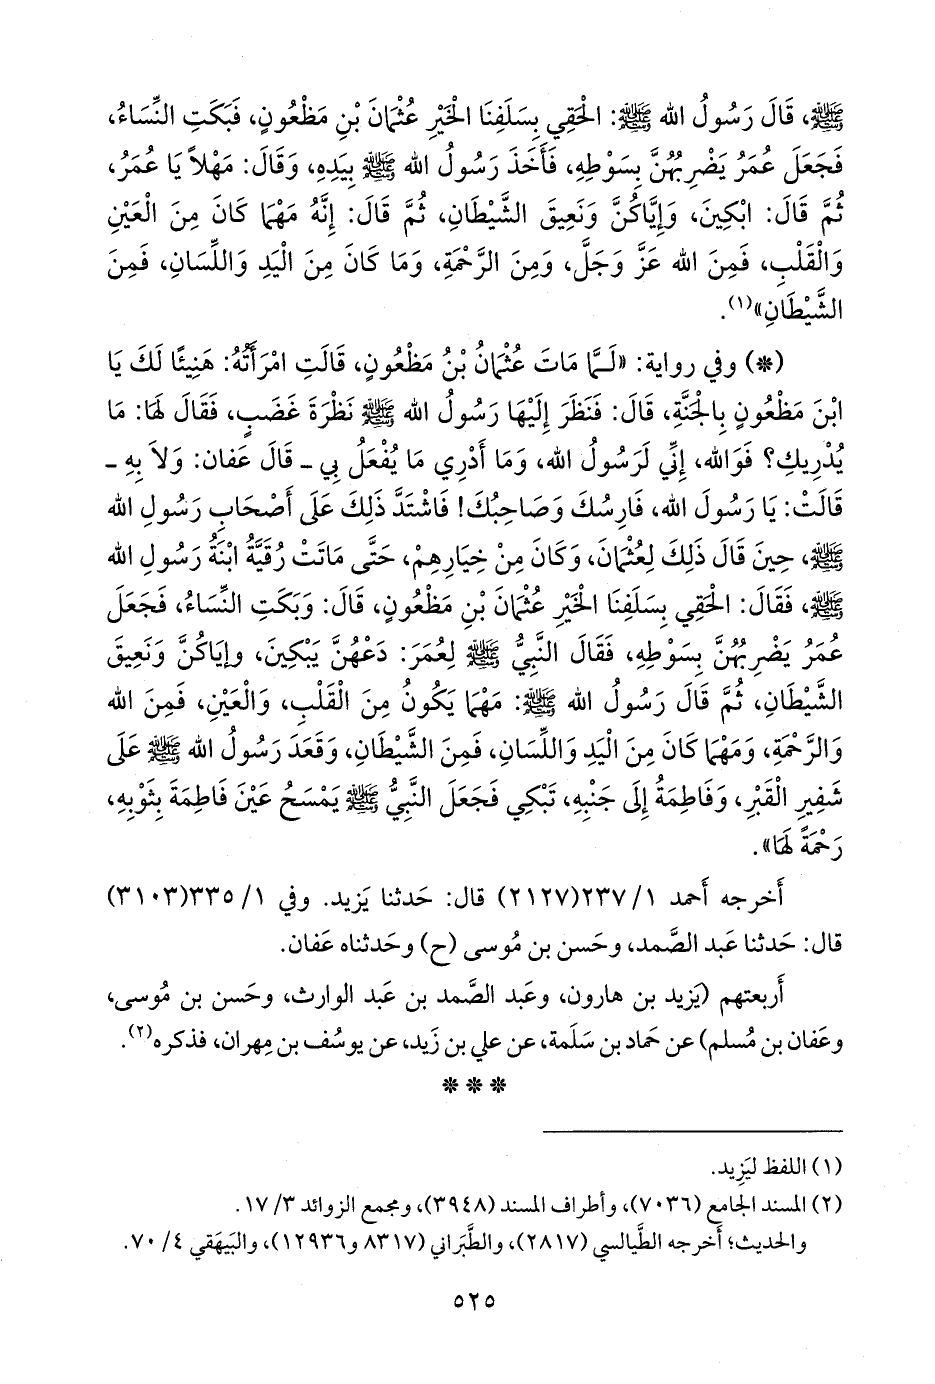 ﷺ، قَالَ رَسُولُ الله ﷺ: الْحَقِي بِسَلَفِنَا الْخَيْرِ عُثْمَانَ بْنِ مَظْعُونٍ، فَبَكَتِ النِّسَاءُ،
فَجَعَلَ عُمَرُ يَضْرِبُهُنَّ بِسَوْطِهِ، فَأَخَذَ رَسُولُ الله ﷺ بِيَدِهِ، وَقَالَ: مَهْلاً يَا عُمَرُ،
ثُمَّ قَالَ: ابْكِينَ، وَإِيَّاكُنَّ وَنَعِيقَ الشَّيْطَانِ، ثُمَّ قَالَ: إِنَّهُ مَهْمَا كَانَ مِنَ الْعَيْنِ
وَالْقَلْبِ، فَمِنَ الله عَزَّ وَجَلَّ، وَمِنَ الرَّحْمَةِ، وَمَا كَانَ مِنَ الْيَدِ وَاللِّسَانِ، فَمِنَ
الشَّيْطَانِ»(١).
(*) وفي رواية: «لَـمَّا مَاتَ عُثْمَانُ بْنُ مَظْعُونٍ، قَالَتِ امْرَأَتُهُ: هَنِيئًا لَكَ يَا
ابْنَ مَظْعُونٍ بِالْجَنَّةِ، قَالَ: فَنَظَرَ إِلَيْهَا رَسُولُ الله ﷺ نَظْرَةَ غَضَبٍ، فَقَالَ لَهَا: مَا
يُدْرِيكِ؟ فَوَالله، إِنِّي لَرَسُولُ الله، وَمَا أَدْرِي مَا يُفْعَلُ بِي ـ قَالَ عَفان: وَلاَ بِهِ ـ
قَالَتْ: يَا رَسُولَ الله، فَارِسُكَ وَصَاحِبُكَ! فَاشْتَدَّ ذَلِكَ عَلَى أَصْحَابِ رَسُولِ الله
ﷺ، حِينَ قَالَ ذَلِكَ لِعُثْمَانَ، وَكَانَ مِنْ خِيَارِهِمْ، حَتَّى مَاتَتْ رُقَيَّةُ ابْنَةُ رَسُولِ الله
ﷺ، فَقَالَ: الْحَقِي بِسَلَفِنَا الْخَيْرِ عُثْمَانَ بْنِ مَظْعُونٍ، قَالَ: وَبَكَتِ النِّسَاءُ، فَجَعَلَ
عُمَرُ يَضْرِبُهُنَّ بِسَوْطِهِ، فَقَالَ النَّبِيُّ ﷺ لِعُمَرَ: دَعْهُنَّ يَبْكِينَ، وإِيَاكُنَّ وَنَعِيقَ
الشَّيْطَانِ، ثُمَّ قَالَ رَسُولُ الله ﷺ: مَهْمَا يَكُونُ مِنَ الْقَلْبِ، وَالْعَيْنِ، فَمِنَ الله
وَالرَّحْمَةِ، وَمَهْمَا كَانَ مِنَ الْيَدِ وَاللِّسَانِ، فَمِنَ الشَّيْطَانِ، وَقَعَدَ رَسُولُ الله ﷺ عَلَى
شَفِيرِ الْقَبْرِ، وَفَاطِمَةُ إِلَى جَنْبِهِ، تَبْكِي فَجَعَلَ النَّبِيُّ ﷺ يَمْسَحُ عَيْنَ فَاطِمَةَ بِثَوْبِهِ،
رَحْمَةً لَهَا».
أَخرجه أَحمد ١/ ٢٣٧(٢١٢٧) قال: حَدثنا يَزيد. وفي ١/ ٣٣٥(٣١٠٣)
قال: حَدثنا عَبد الصَّمد، وحَسن بن مُوسى (ح) وحَدثناه عَفان.
أَربعتهم (يَزيد بن هارون، وعَبد الصَّمد بن عَبد الوارث، وحَسن بن مُوسى،
وعَفان بن مُسلم) عن حَماد بن سَلَمة، عن علي بن زَيد، عن يوسُف بن مِهران، فذكره(٢).
* * *
(١) اللفظ ليَزِيد.
(٢) المسند الجامع (٧٠٣٦)، وأطراف المسند (٣٩٤٨)، ومجمع الزوائد ٣/ ١٧.
والحديث؛ أَخرجه الطَّيالسي (٢٨١٧)، والطَّبَراني (٨٣١٧ و١٢٩٣٦)، والبَيهَقي ٤/ ٧٠.
٥٢٥